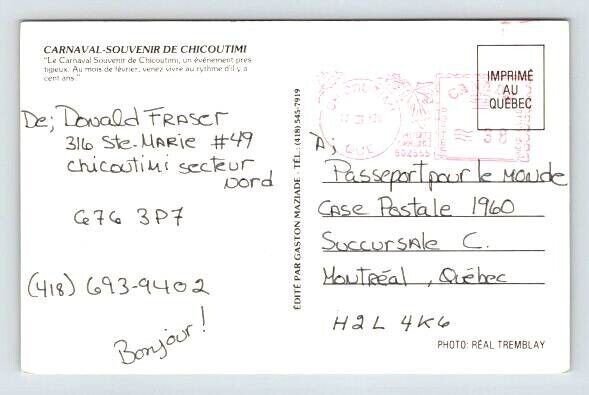 CARNAVAL-SOUVENIR DE CHICOUTIMI
"Le Carnaval Souvenir de Chicoutimi, un événement pres
tigieux. Au mois de février, venez vivre au rythme d'il y a
cent ans."
De; Donald FRASER
316 Ste-MARIE #49
Chicoutimi secteur
nord
G7G 3P7
(418) 693-9402
Bonjour!
ÉDITÉ PAR GASTON MAZIADE - TÉL.: (418) 545-7919
IMPRIMÉ
AU
QUÉBEC
QUE
38
A;
Passeport pour le MONDE
CASE Postale 1960
SUCCURSALE C.
MONTRÉAL, QUÉBEC
H2L 4K6
PHOTO: RÉAL TREMBLAY